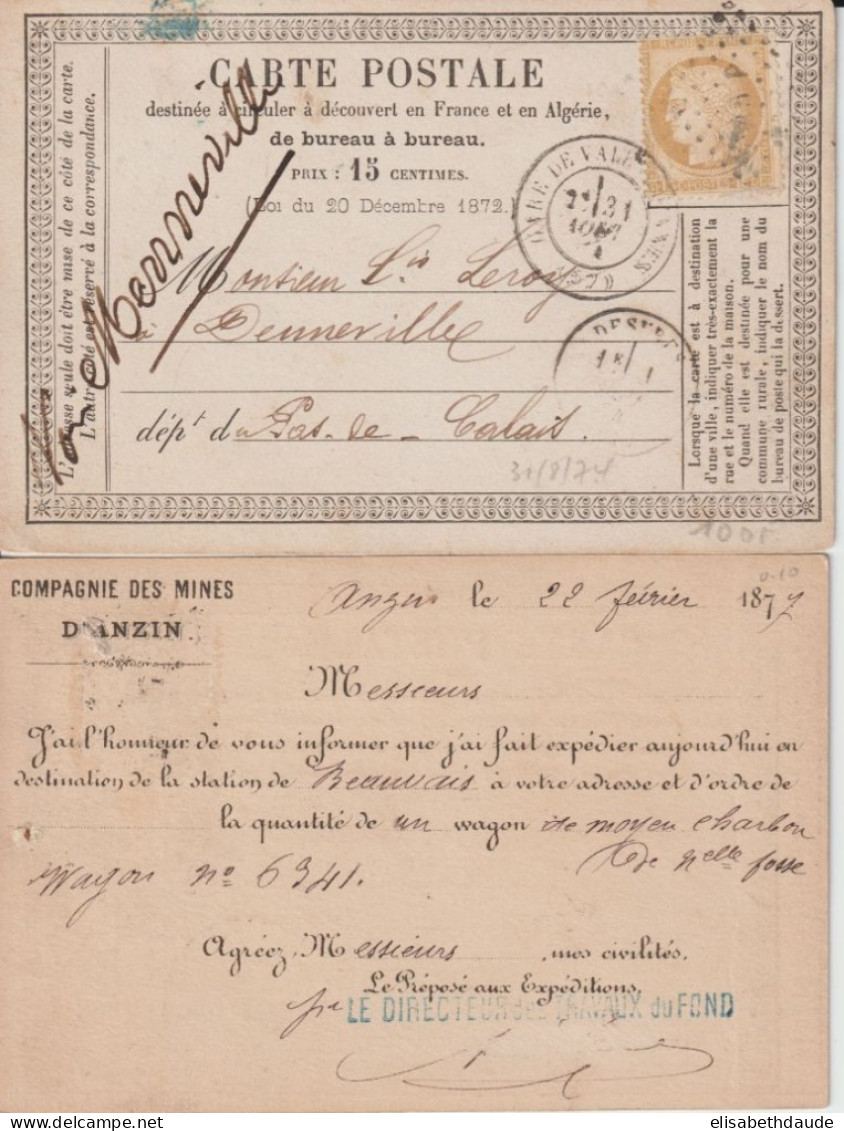 CARTE POSTALE
destinée à circuler à découvert en France et en Algérie,
de bureau à bureau.
PRIX : 15 CENTIMES.
(Loi du 20 Décembre 1872.)
L'adresse seule doit être mise de ce côté de la carte.
L'autre côté est réservé à la correspondance.
GARE DE VALENCIENNES
31
AOUT
(57)
Monsieur Lis Leroy
à Denneville
dépt du Pas-de-Calais
DESVRES
Lorsque la carte est à destination
d'une ville, indiquer très-exactement la
rue et le numéro de la maison.
Quand elle est destinée pour une
commune rurale, indiquer le nom du
bureau de poste qui la dessert.
31/8/74
100F
COMPAGNIE DES MINES
D'ANZIN
0-10
Anzin le 22 février 1877
Messieurs
J'ai l'honneur de vous informer que j'ai fait expédier aujourd'hui en
destination de la station de Beauvais à votre adresse et d'ordre de
la quantité de un wagon de moyen charbon
de nelle fosse
Wagon no 6341.
Agréez, Messieurs, mes civilités.
Le Préposé aux Expéditions,
LE DIRECTEUR des TRAVAUX du FOND
elisabethdaude